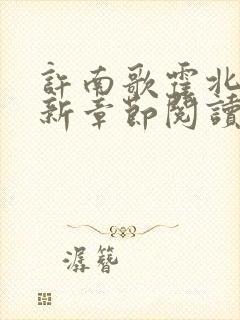 許南歌霍北
新章節閱讀
潺簪